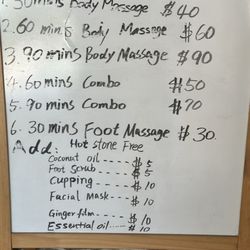 1. 30mins Body Massage $40
2. 60 mins Body Massage $60
3. 90 mins Body Massage $90
4. 60 mins Combo $50
5. 90 mins Combo $70
6. 30 mins Foot Massage $30.
Add: Hot stone Free
Coconut oil --- $5
Foot Scrub --- $5
Cupping --- $10
Facial mask --- $10
Ginger film --- $10
Essential oil --- $10